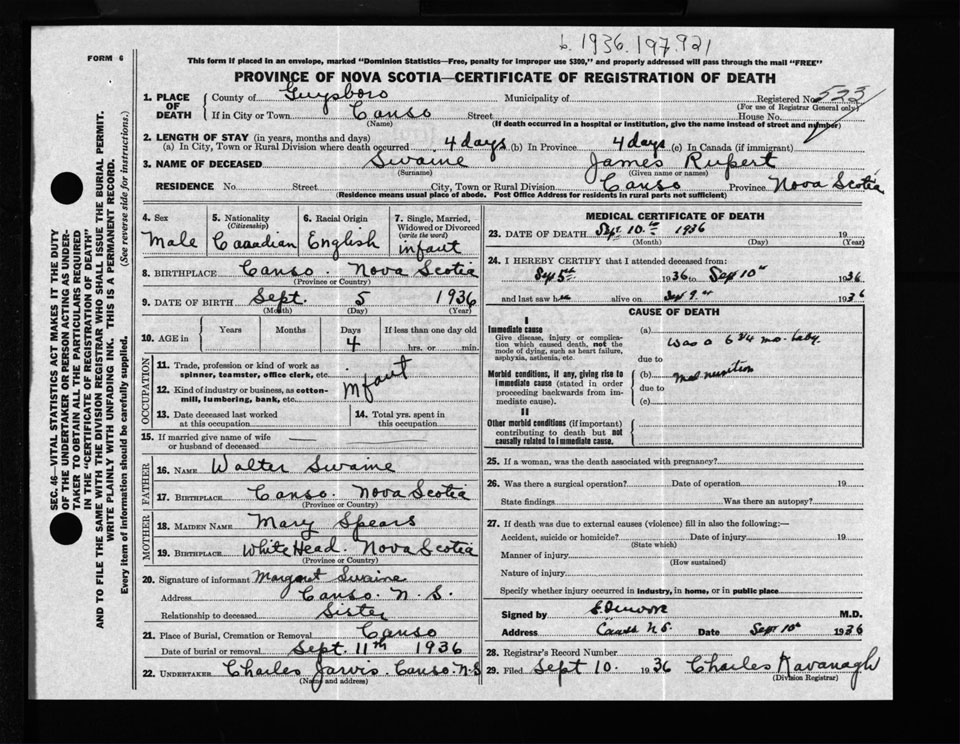 b. 1936.197.921
FORM 6
This form if placed in an envelope, marked "Dominion Statistics—Free, penalty for improper use $300," and properly addressed will pass through the mail "FREE"
PROVINCE OF NOVA SCOTIA—CERTIFICATE OF REGISTRATION OF DEATH
SEC. 46—VITAL STATISTICS ACT MAKES IT THE DUTY
OF THE UNDERTAKER OR PERSON ACTING AS UNDER-
TAKER TO OBTAIN ALL THE PARTICULARS REQUIRED
IN THE "CERTIFICATE OF REGISTRATION OF DEATH"
AND TO FILE THE SAME WITH THE DIVISION REGISTRAR WHO SHALL ISSUE THE BURIAL PERMIT.
WRITE PLAINLY WITH UNFADING INK. THIS IS A PERMANENT RECORD.
Every item of information should be carefully supplied. (See reverse side for instructions.)
1. PLACE OF DEATH County of Guysboro Municipality of Registered No. 523
(For use of Registrar General only)
If in City or Town Canso Street House No.
(Name) (If death occurred in a hospital or institution, give the name instead of street and number)
2. LENGTH OF STAY (in years, months and days)
(a) In City, Town or Rural Division where death occurred 4 days (b) In Province 4 days (c) In Canada (if immigrant)
3. NAME OF DECEASED Swaine James Rupert
(Surname) (Given name or names)
RESIDENCE No Street City, Town or Rural Division Canso Province Nova Scotia
(Residence means usual place of abode. Post Office Address for residents in rural parts not sufficient)
4. Sex
Male
5. Nationality
(Citizenship)
Canadian
6. Racial Origin
English
7. Single, Married,
Widowed or Divorced
(write the word)
infant
8. BIRTHPLACE Canso. Nova Scotia
(Province or Country)
9. DATE OF BIRTH Sept. 5 1936
(Month) (Day) (Year)
10. AGE in Years Months Days If less than one day old
4 hrs. or min.
OCCUPATION
11. Trade, profession or kind of work as
spinner, teamster, office clerk, etc.
12. Kind of industry or business, as cotton-
mill, lumbering, bank, etc.
Infant
13. Date deceased last worked
at this occupation
14. Total yrs. spent in
this occupation
15. If married give name of wife
or husband of deceased
FATHER
16. NAME Walter Swaine
17. BIRTHPLACE Canso. Nova Scotia
(Province or Country)
MOTHER
18. MAIDEN NAME Mary Spears
19. BIRTHPLACE White Head. Nova Scotia
(Province or Country)
20. Signature of informant Margaret Swaine
Address Canso. N. S.
Relationship to deceased Sister
21. Place of Burial, Cremation or Removal Canso
Date of burial or removal Sept. 11th 1936
22. UNDERTAKER Charles Jarvis. Canso N.S
(Name and address)
MEDICAL CERTIFICATE OF DEATH
23. DATE OF DEATH Sept. 10th 1936 19
(Month) (Day) (Year)
24. I HEREBY CERTIFY that I attended deceased from:
Sep 5th 1936 to Sep 10th 1936
and last saw h alive on Sep 9th 1936
CAUSE OF DEATH
I
Immediate cause
Give disease, injury or complica-
tion which caused death, not the
mode of dying, such as heart failure,
asphyxia, asthenia, etc.
(a) Was a 6 3/4 mo. baby
due to
Morbid conditions, if any, giving rise to
immediate cause (stated in order
proceeding backwards from im-
mediate cause).
(b) Malnutrition
due to
(c)
II
Other morbid conditions (if important)
contributing to death but not
causally related to immediate cause.
25. If a woman, was the death associated with pregnancy?
26. Was there a surgical operation? Date of operation 19
State findings Was there an autopsy?
27. If death was due to external causes (violence) fill in also the following:—
Accident, suicide or homicide? Date of injury 19
(State which)
Manner of injury
(How sustained)
Nature of injury
Specify whether injury occurred in industry, in home, or in public place
Signed by M.D.
Address Canso N.S. Date Sept 10th 1936
28. Registrar's Record Number
29. Filed Sept 10. 1936 Charles Kavanagh
(Division Registrar)